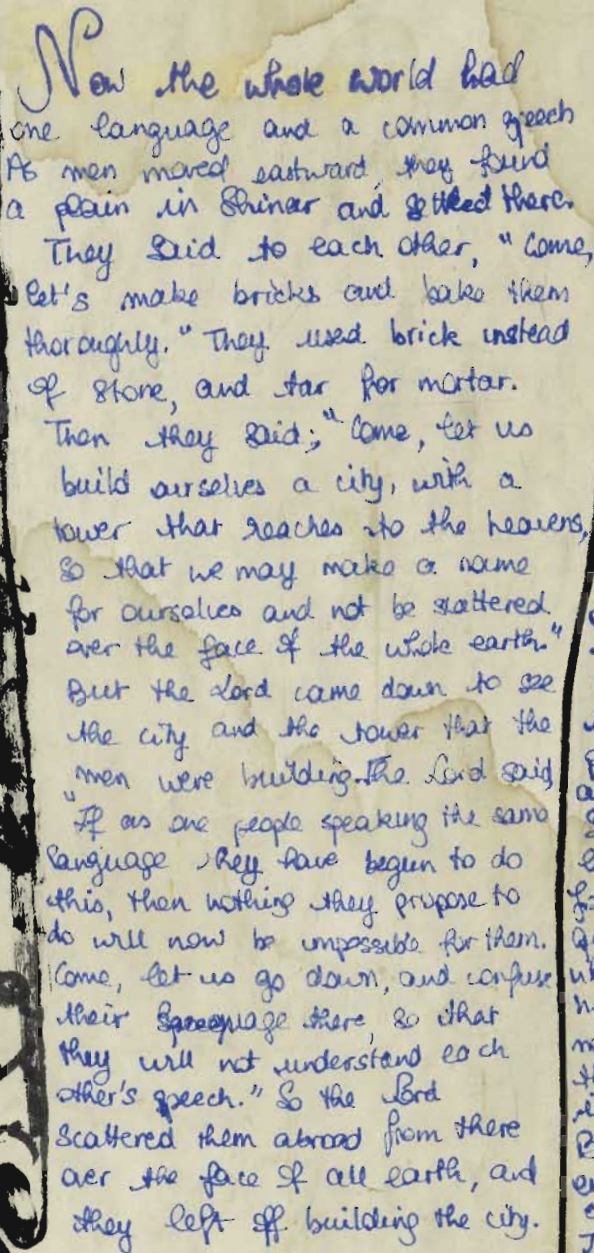 Now the whole world had
one language and a common speech
As men moved eastward, they found
a plain in Shinar and settled there.
They said to each other, "Come,
let's make bricks and bake them
thoroughly." They used brick instead
of stone, and tar for mortar.
Then they said; "Come, let us
build ourselves a city, with a
tower that reaches to the heavens,
so that we may make a name
for ourselves and not be scattered
over the face of the whole earth."
But the Lord came down to see
the city and the tower that the
men were building. The Lord said,
"If as one people speaking the same
language they have begun to do
this, then nothing they propose to
do will now be impossible for them.
Come, let us go down, and confuse
their language there, so that
they will not understand each
other's speech." So the Lord
scattered them abroad from there
over the face of all earth, and
they left off building the city.